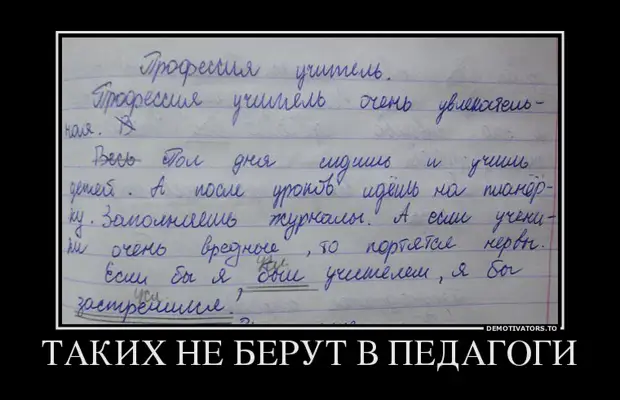 Профессия учитель.
Профессия учитель очень увлекатель-
ная. В
Весь Пол дня сидишь и учишь
детей. А после уроков идёшь на планёр-
ку. Заполняешь журналы. А если учени-
ки очень вредные, то портятся нервы.
усл.
Если бы я, был учителем, я бы
усл
застрелился.
DEMOTIVATORS.TO
ТАКИХ НЕ БЕРУТ В ПЕДАГОГИ